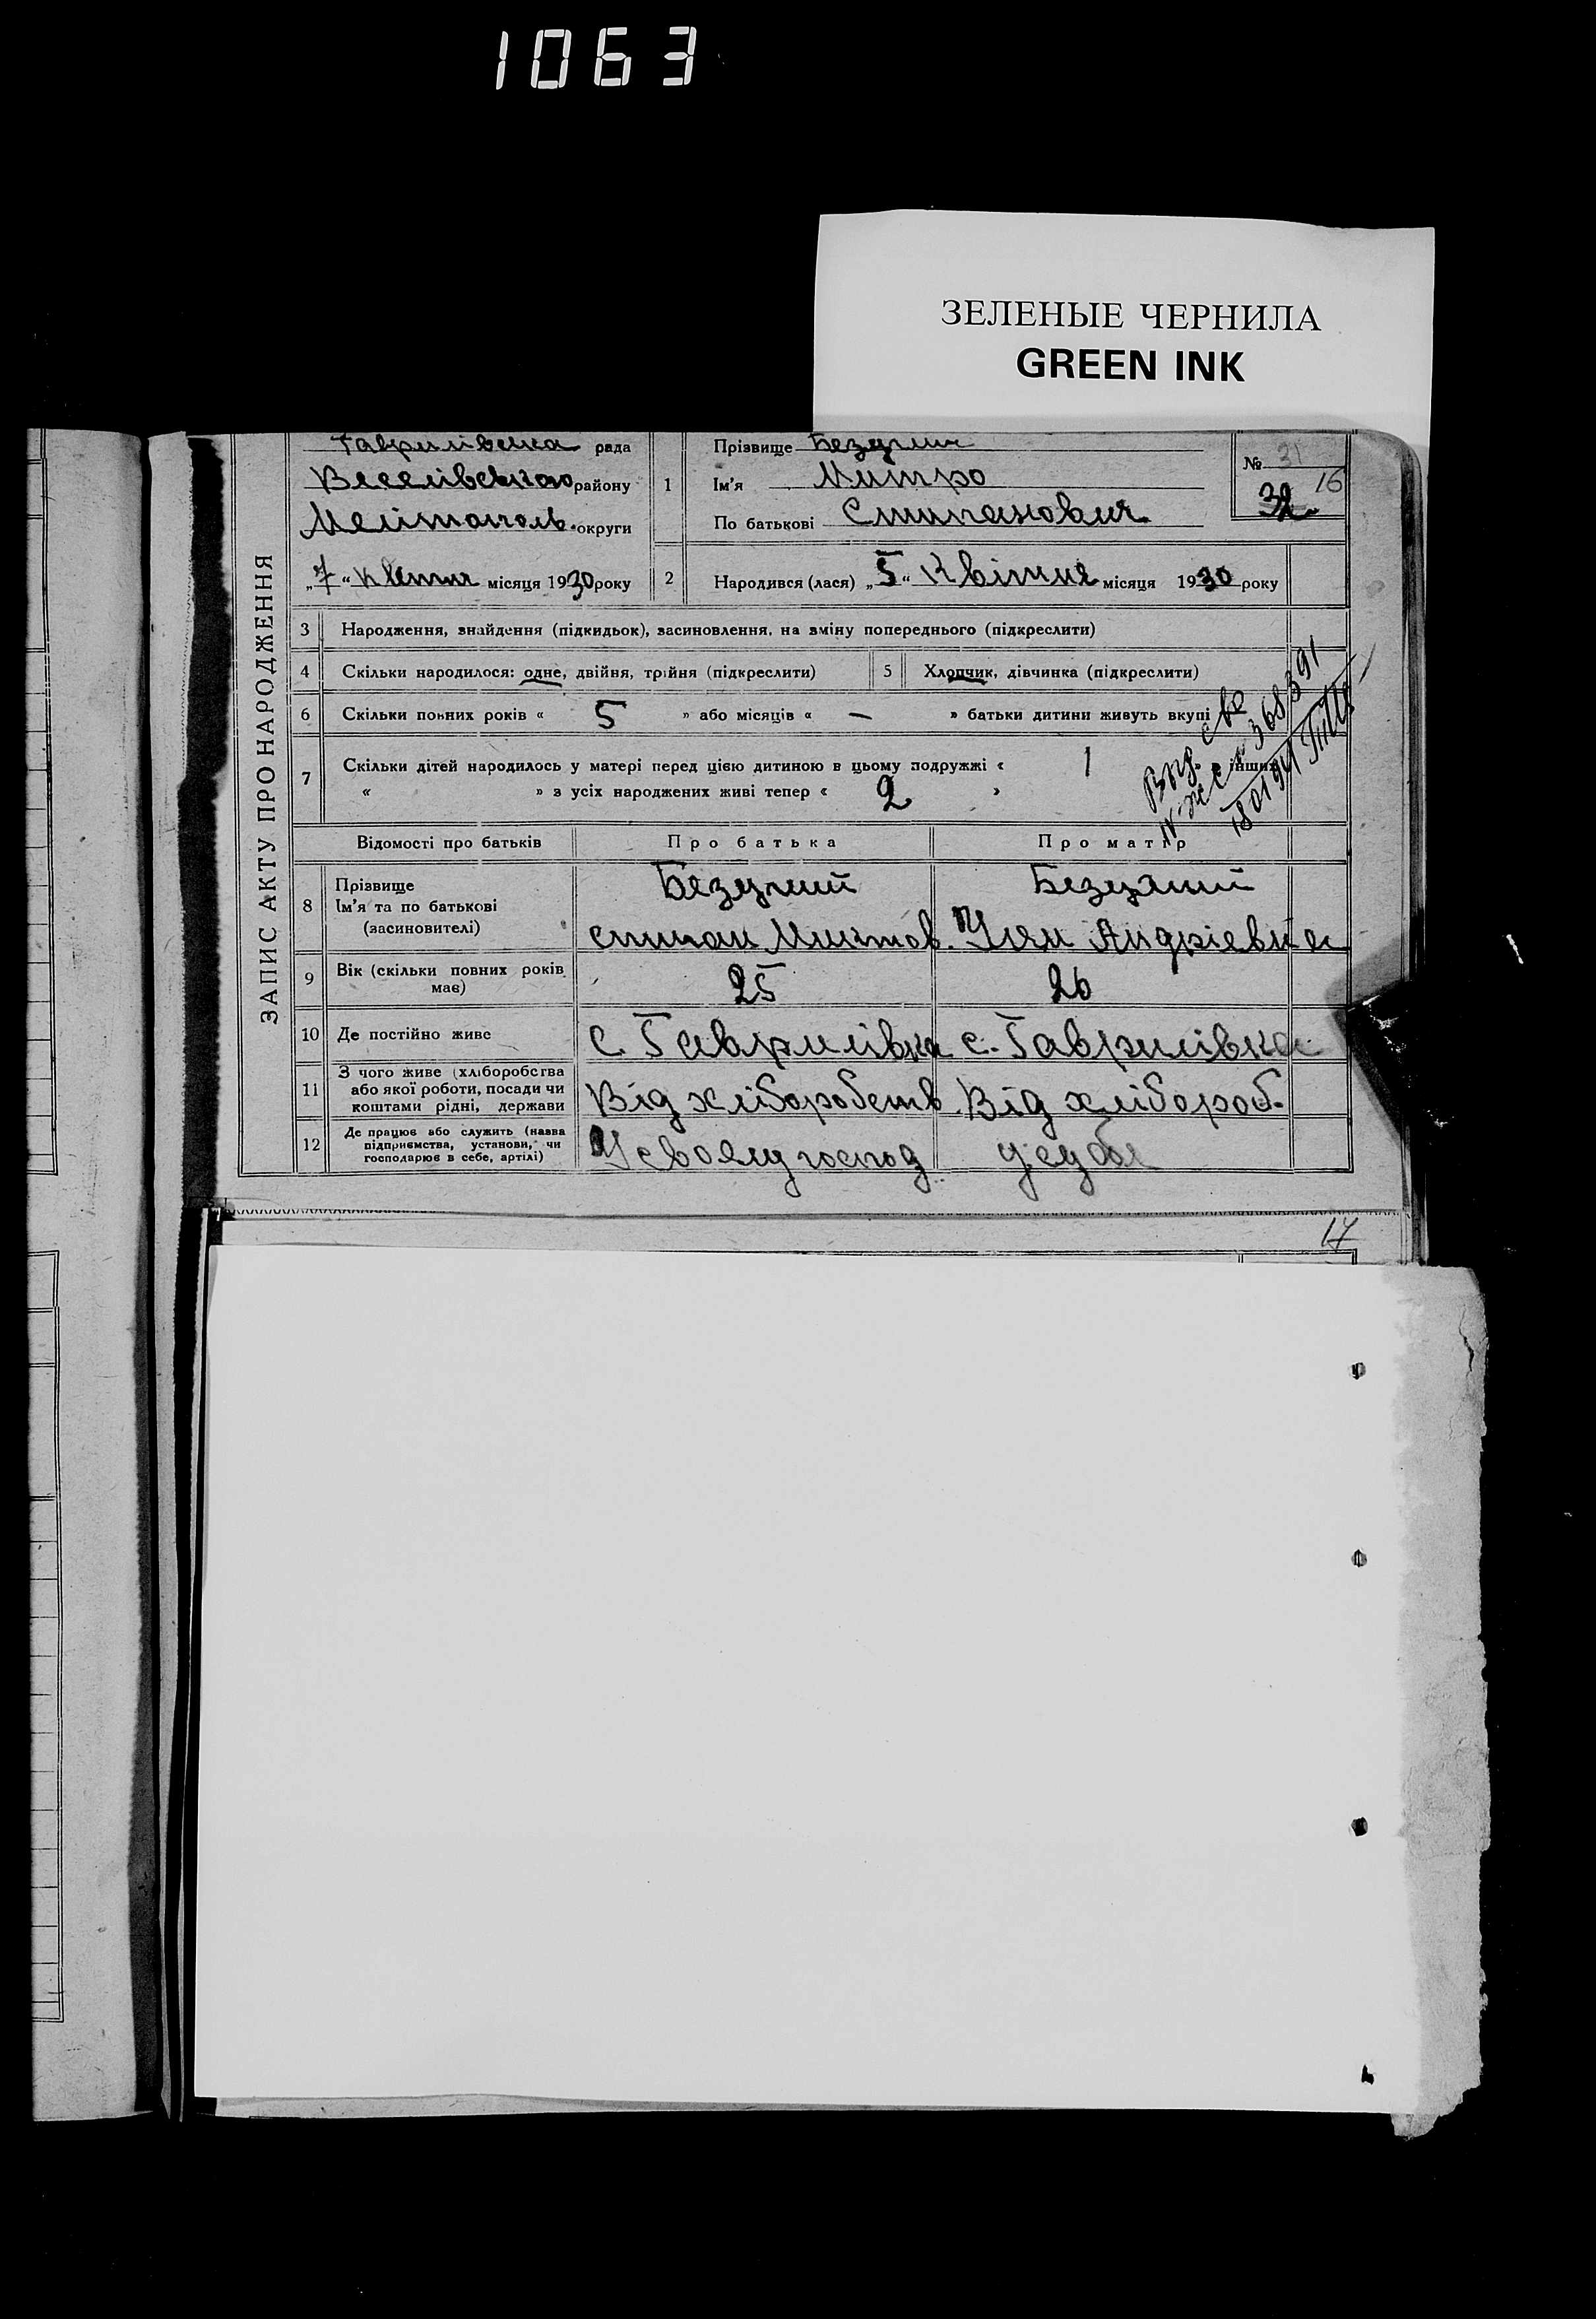 1063
ЗЕЛЕНЫЕ ЧЕРНИЛА
GREEN INK
ЗАПИС АКТУ ПРО НАРОДЖЕННЯ
Гаврилівська рада
Веселівського району
Мелітополь. округи
„7“ квітня місяця 1930 року
1
Прізвище
Ім'я Митро
По батькові Стипанович
№ 31
32
16
2 Народився (лася) „5“ Квітня місяця 1930 року
3 Народження, знайдення (підкидьок), засиновлення, на зміну попереднього (підкреслити)
4 Скільки народилося: одне, двійня, трійня (підкреслити)
5 Хлопчик, дівчинка (підкреслити)
6 Скільки повних років « 5 » або місяців « — » батьки дитини живуть вкупі
7 Скільки дітей народилось у матері перед цією дитиною в цьому подружжі « 1 інших
« » з усіх народжених живі тепер « 2 »
368391
Відомості про батьків
Про батька
Про матір
8 Прізвище
Ім'я та по батькові
(засиновителі)
стипан
Андріевна
9 Вік (скільки повних років має)
25
26
10 Де постійно живе
с. Гаврилівка
с. Гаврилівка
11 З чого живе (хліборобства
або якої роботи, посади чи
коштами рідні, держави
Від хліборобств
Від хлібороб.
12 Де працює або служить (назва
підприємства, установи, чи
господарює в себе, артілі)
У своему господ
у себе
17